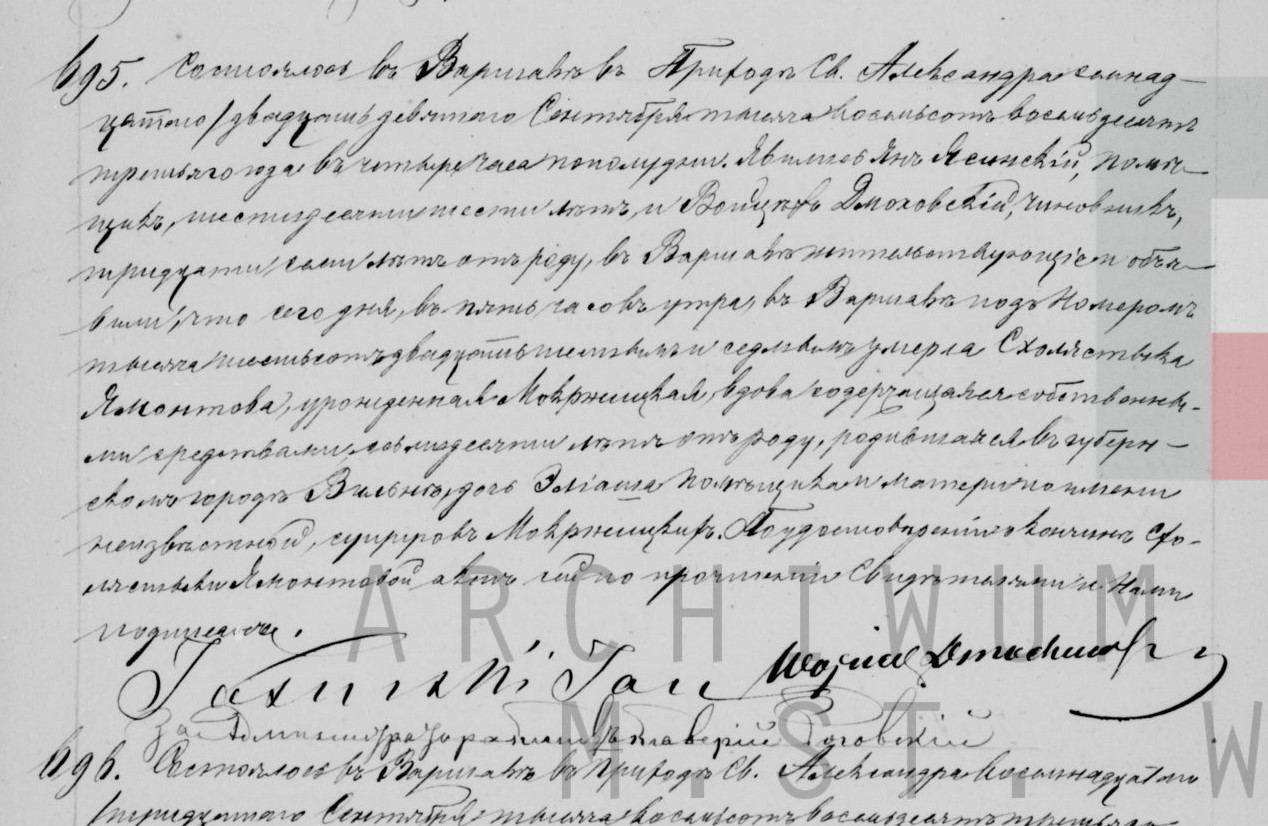 695. Состоялось въ Варшавѣ въ Приходѣ Св. Александра семнад-
цатаго/двадцать девятаго Сентября тысяча восемьсотъ восемьдесятъ
третьяго года въ четыре часа по полудни. Явились Янъ Ясинскій, помѣ-
щикъ, шестидесяти шести лѣтъ, и Войцѣхъ Дмоховскій, чиновникъ,
тридцати семи лѣтъ отъ роду, въ Варшавѣ жительствующіе и объя-
вили, что сего дня, въ пять часовъ утра, въ Варшавѣ подъ номеромъ
тысяча шестьсотъ двадцать и седмымъ умерла Схолястыка
Ямонтова, урожденная Мокржицкая, вдова содержащаяся собственны-
ми средствами, лѣтъ отъ роду, родившаяся въ губерн-
скомъ городѣ Вильнѣ, дочь Эліаша помѣщика и матери по имени
неизвѣстной, супруговъ Мокржицкихъ. По удостовѣреніи о кончинѣ Схо-
лястыки Ямонтовой актъ сей по прочтеніи Свидѣтелями и Нами
подписанъ.
Jasiński Jan Wojciech Dmochowski
За Администратора Ксаверій Роговскій
696. Состоялось въ Варшавѣ въ Приходѣ Св. Александра Восемнадцатаго
/тридцатаго Сентября тысяча восемьсотъ восемьдесятъ третьяго
ARCHIWUM
M.ST.W